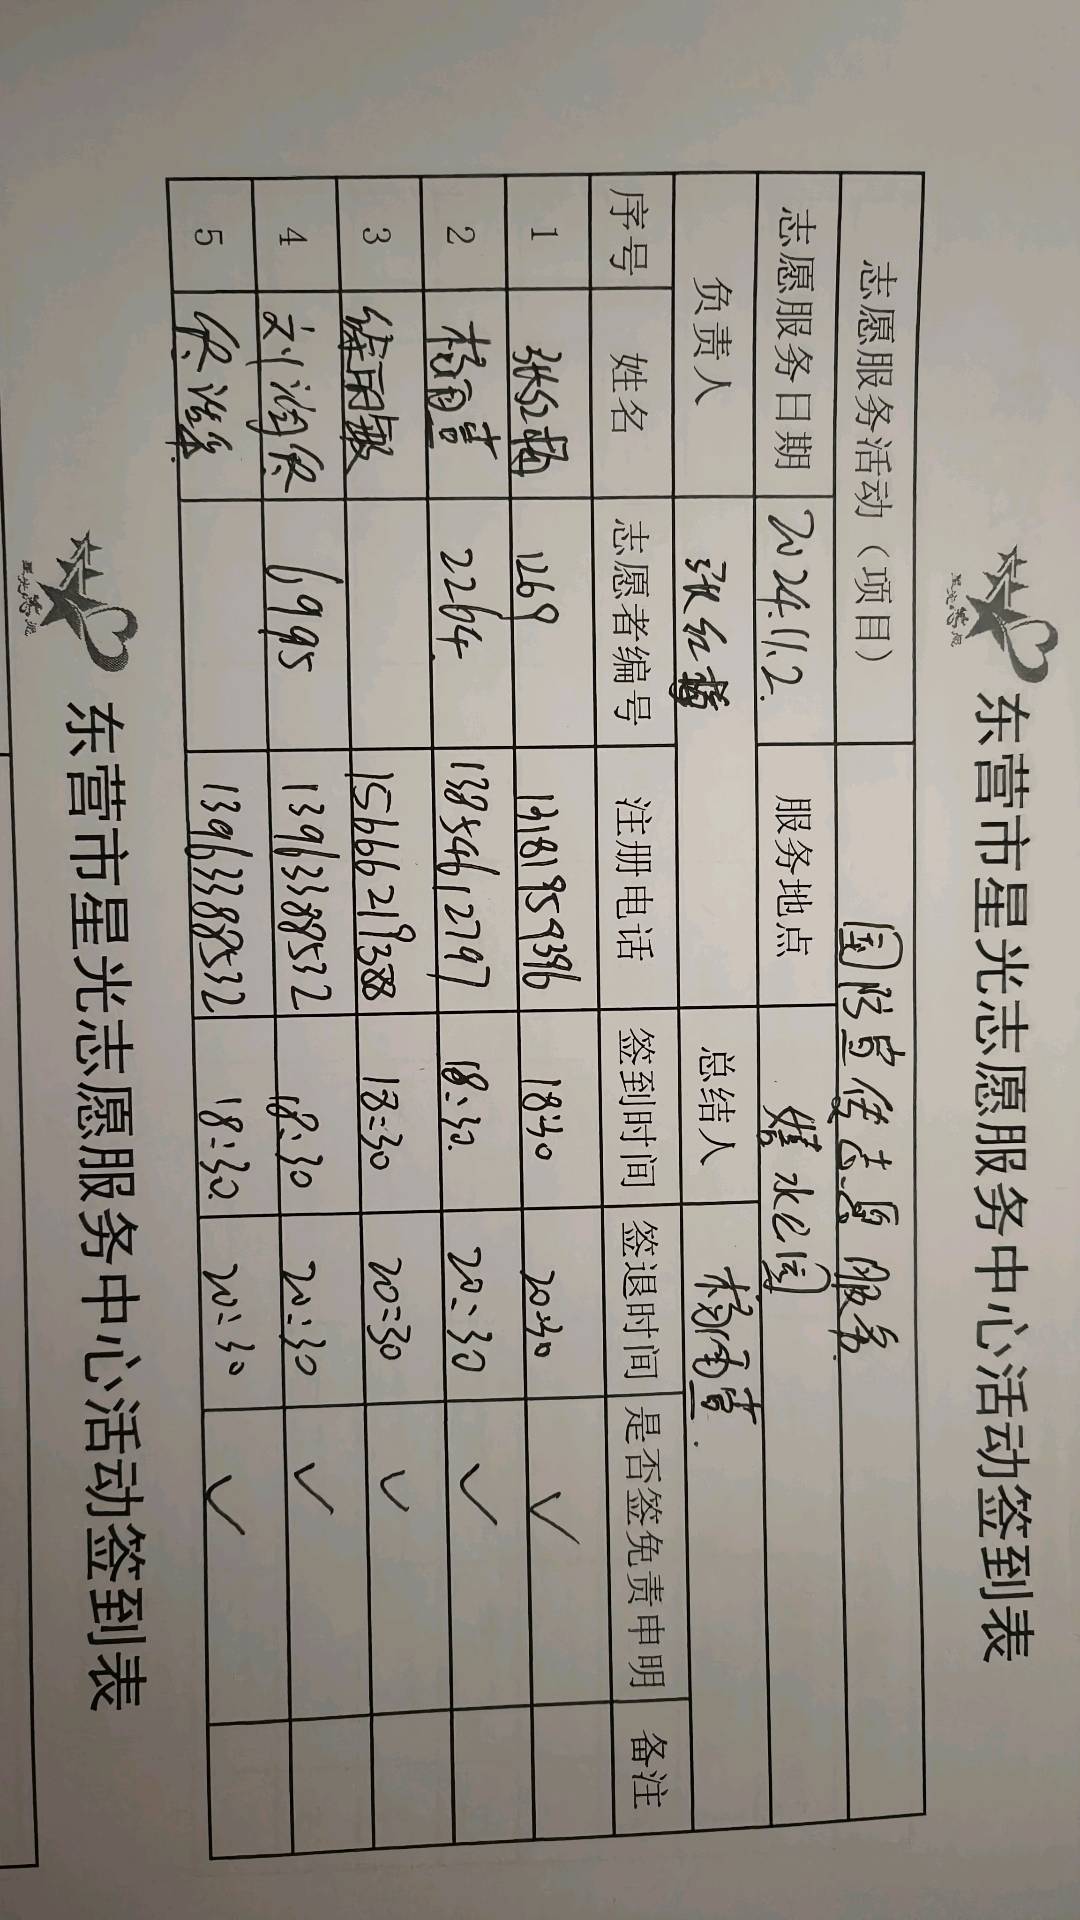 东营市星光志愿服务中心活动签到表
志愿服务活动（项目） 国防宣传志愿服务
志愿服务日期 2024.11.2. 服务地点 清水公园
负责人 张红梅 总结人 杨雨
序号 姓名 志愿者编号 注册电话 签到时间 签退时间 是否签免责申明 备注
1 张红梅 1269 13181959396 18:30 20:30 ✓
2 2264 13854612797 18:30 20:30 ✓
3 徐丽敏 15666219388 18:30 20:30 ✓
4 刘润泉 6995 13963388532 18:30 20:30 ✓
5 13963388532 18:30 20:30 ✓
东营市星光志愿服务中心活动签到表